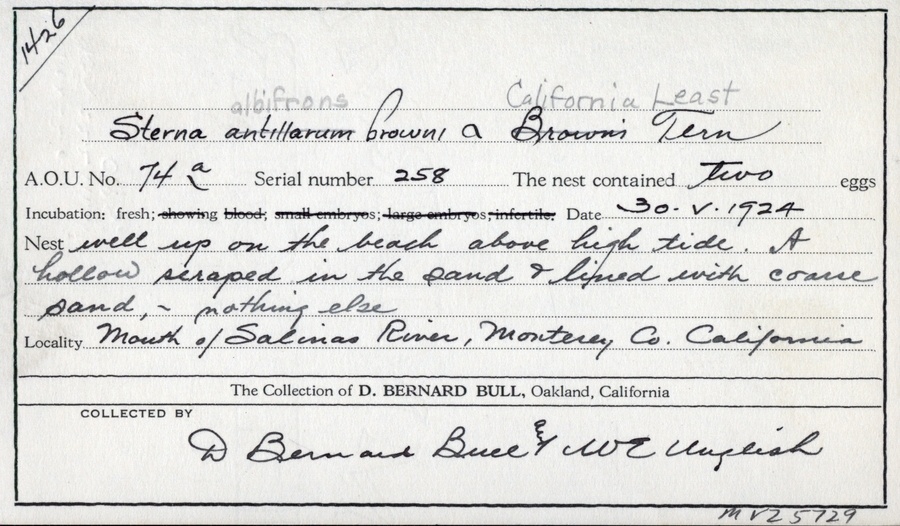 1426
albifrons California Least
Sterna antillarum browni a Brown's Tern
A.O.U. No. 74 a Serial number 258 The nest contained two eggs
Incubation: fresh; showing blood; small embryos; large embryos; infertile. Date 30. V. 1924
Nest well up on the beach above high tide. A
hollow scraped in the sand & lined with coarse
sand, - nothing else
Locality Mouth of Salinas River, Monterey Co. California
The Collection of D. BERNARD BULL, Oakland, California
COLLECTED BY
D Bernard Bull and W E Unglish
MVZ 5729